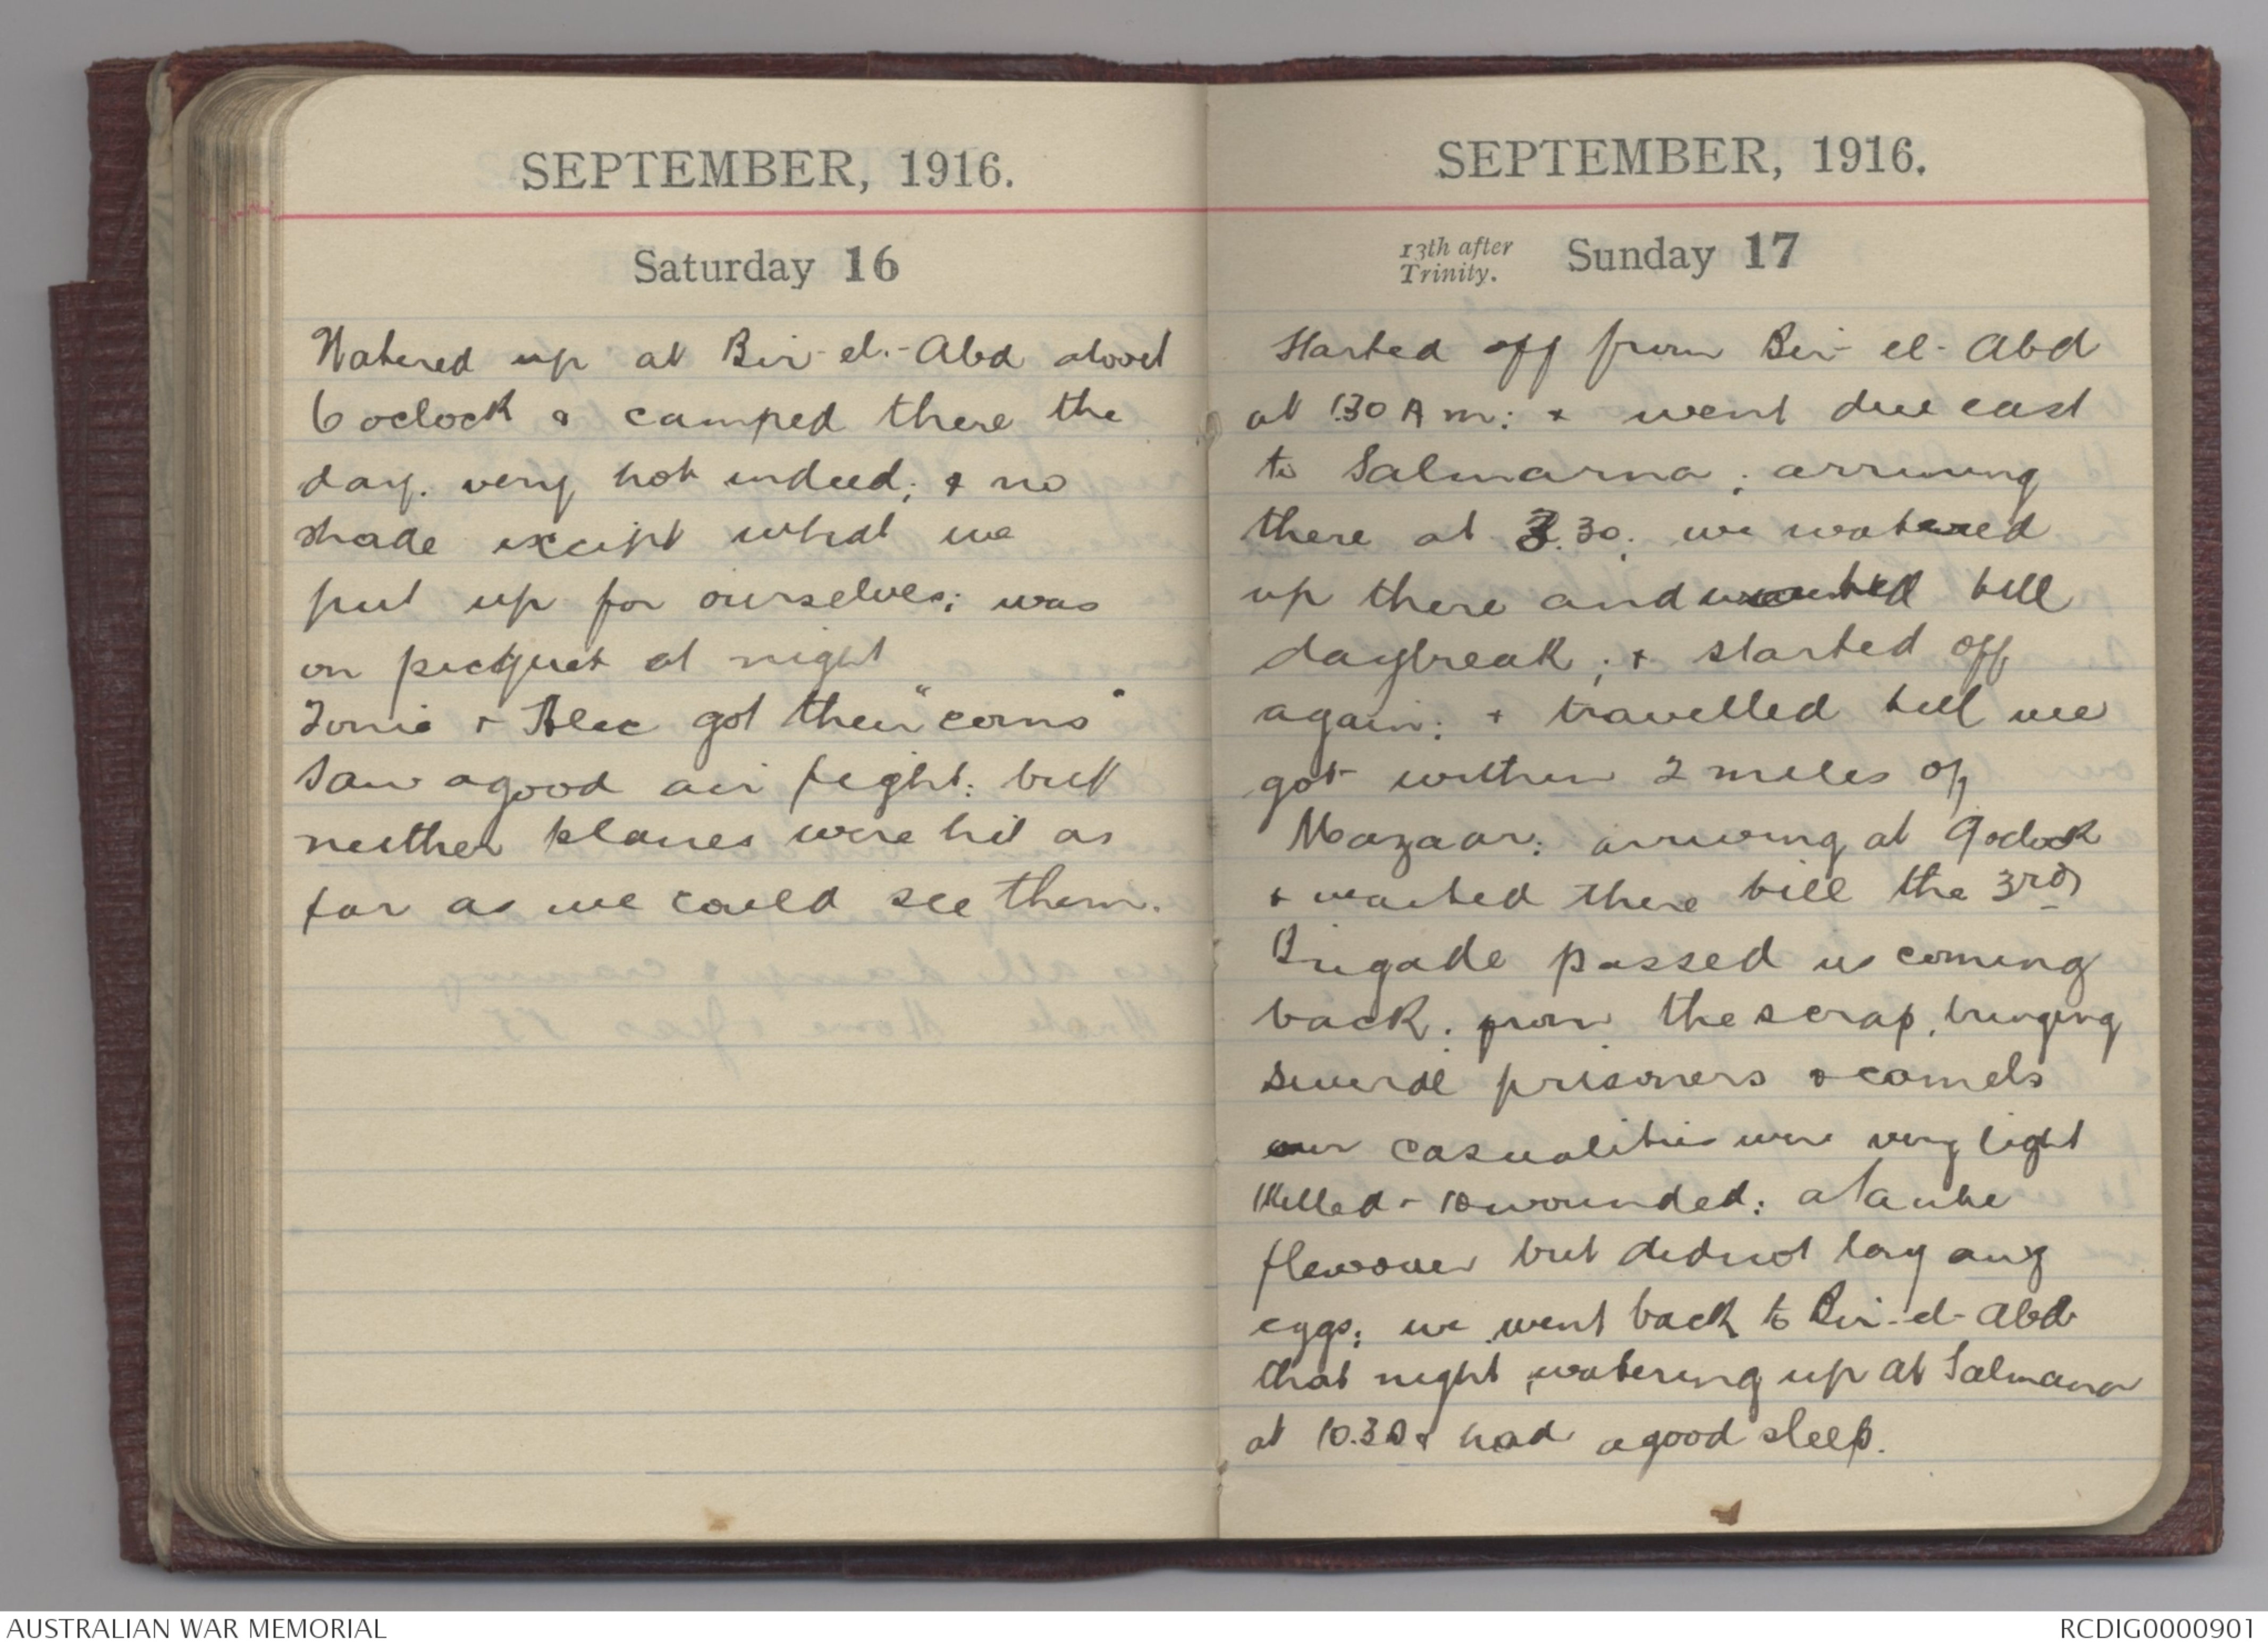 SEPTEMBER, 1916.
Saturday 16
Watered up at Bir-el-Abd about
6 oclock & camped there the
day. very hot indeed; & no
shade except what we
put up for ourselves; was
on picquet at night
+ Alec got their "coms"
Saw a good air fight: but
neither planes were hit as
far as we could see them.
SEPTEMBER, 1916.
13th after
Trinity.
Sunday 17
Started off from Bir-el-Abd
at 1.30 A m: + went due east
to Salmarna; arriving
there at 3.30; we watered
up there and waited till
daybreak; + started off
again; + travelled till we
got within 2 miles of
Mazaar: arriving at 9 oclock
+ waited there till the 3rd
Brigade passed us coming
back. from the scrap, bringing
several prisoners & camels
our casualities were very light
1 killed - 10 wounded: a Taube
flew over but did not lay any
eggs; we went back to Bir-el-Abd
that night, watering up at Salmana
at 10.30 & had a good sleep.
AUSTRALIAN WAR MEMORIAL
RCDIG0000901